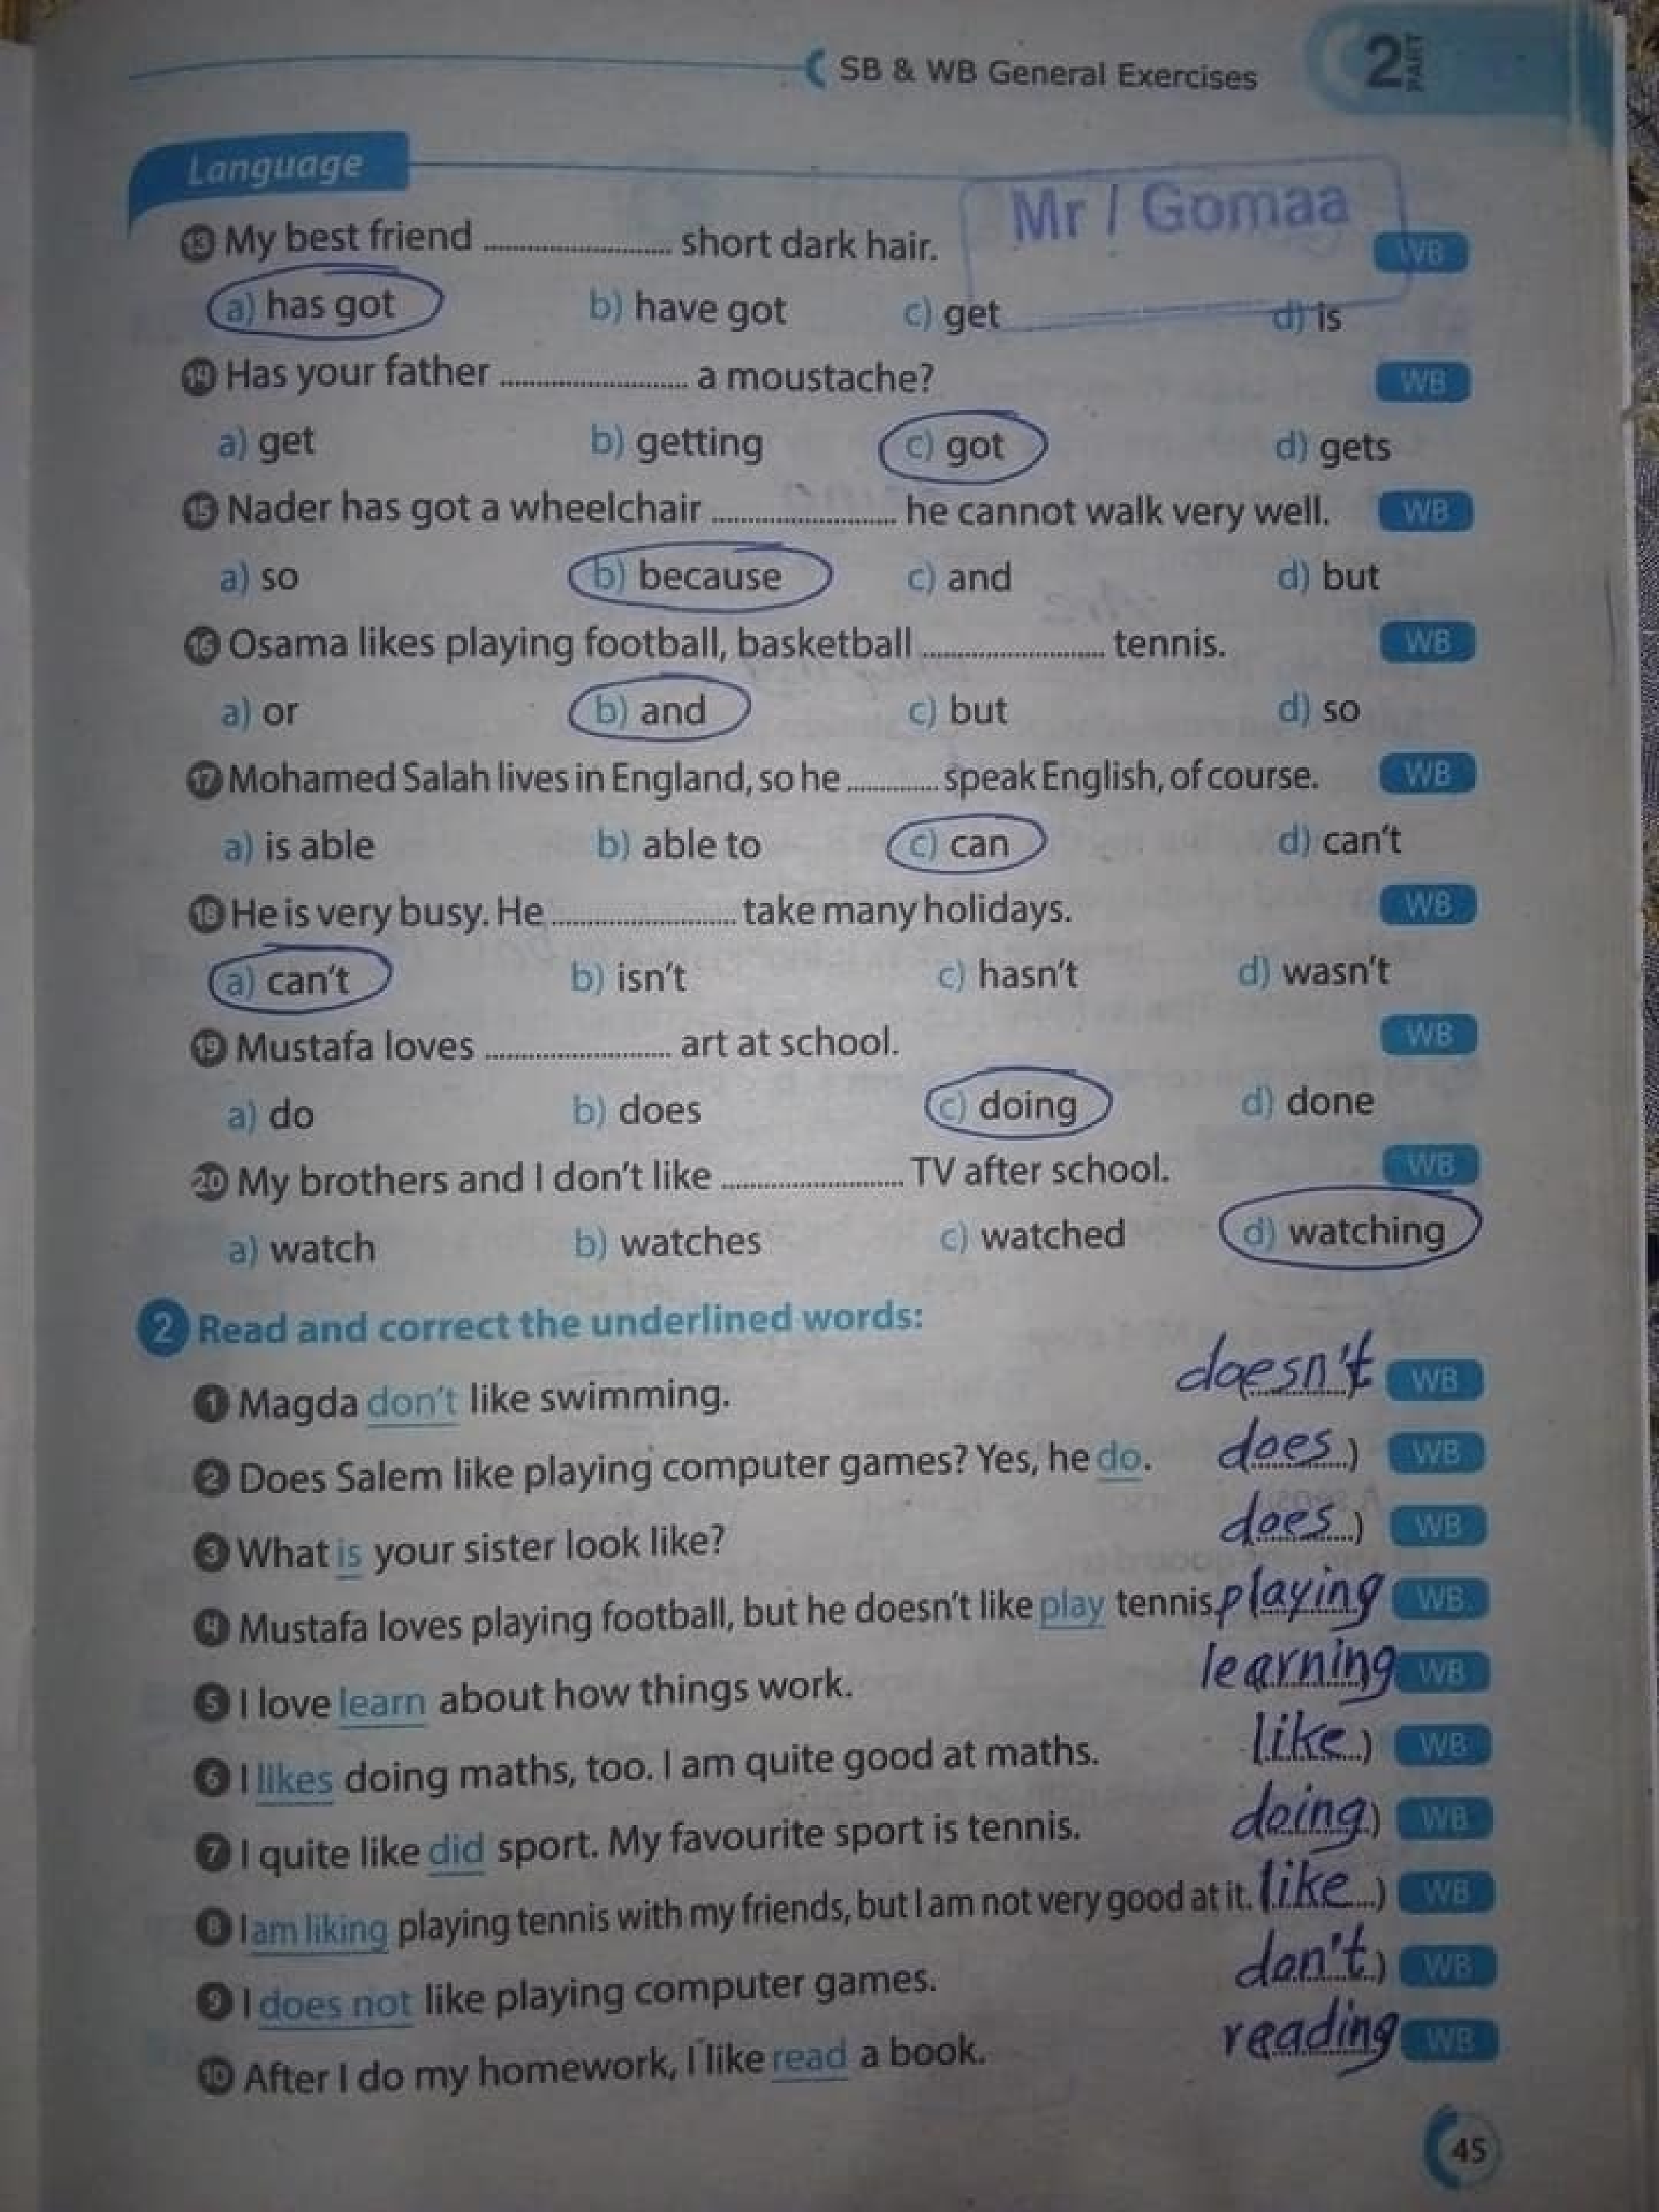 SB & WB General Exercises 2 PART
Language
Mr / Gomaa
13 My best friend ........................ short dark hair. WB
a) has got b) have got c) get d) is
14 Has your father ........................ a moustache? WB
a) get b) getting c) got d) gets
15 Nader has got a wheelchair ........................ he cannot walk very well. WB
a) so b) because c) and d) but
16 Osama likes playing football, basketball ........................ tennis. WB
a) or b) and c) but d) so
17 Mohamed Salah lives in England, so he ............ speak English, of course. WB
a) is able b) able to c) can d) can't
18 He is very busy. He ........................ take many holidays. WB
a) can't b) isn't c) hasn't d) wasn't
19 Mustafa loves ........................ art at school. WB
a) do b) does c) doing d) done
20 My brothers and I don't like ........................ TV after school. WB
a) watch b) watches c) watched d) watching
2 Read and correct the underlined words:
1 Magda don't like swimming. doesn't WB
2 Does Salem like playing computer games? Yes, he do. does ) WB
3 What is your sister look like? does ) WB
4 Mustafa loves playing football, but he doesn't like play tennis. playing WB
5 I love learn about how things work. learning WB
6 I likes doing maths, too. I am quite good at maths. like ) WB
7 I quite like did sport. My favourite sport is tennis. doing ) WB
8 I am liking playing tennis with my friends, but I am not very good at it. like ) WB
9 I does not like playing computer games. don't ) WB
10 After I do my homework, I like read a book. reading WB
45